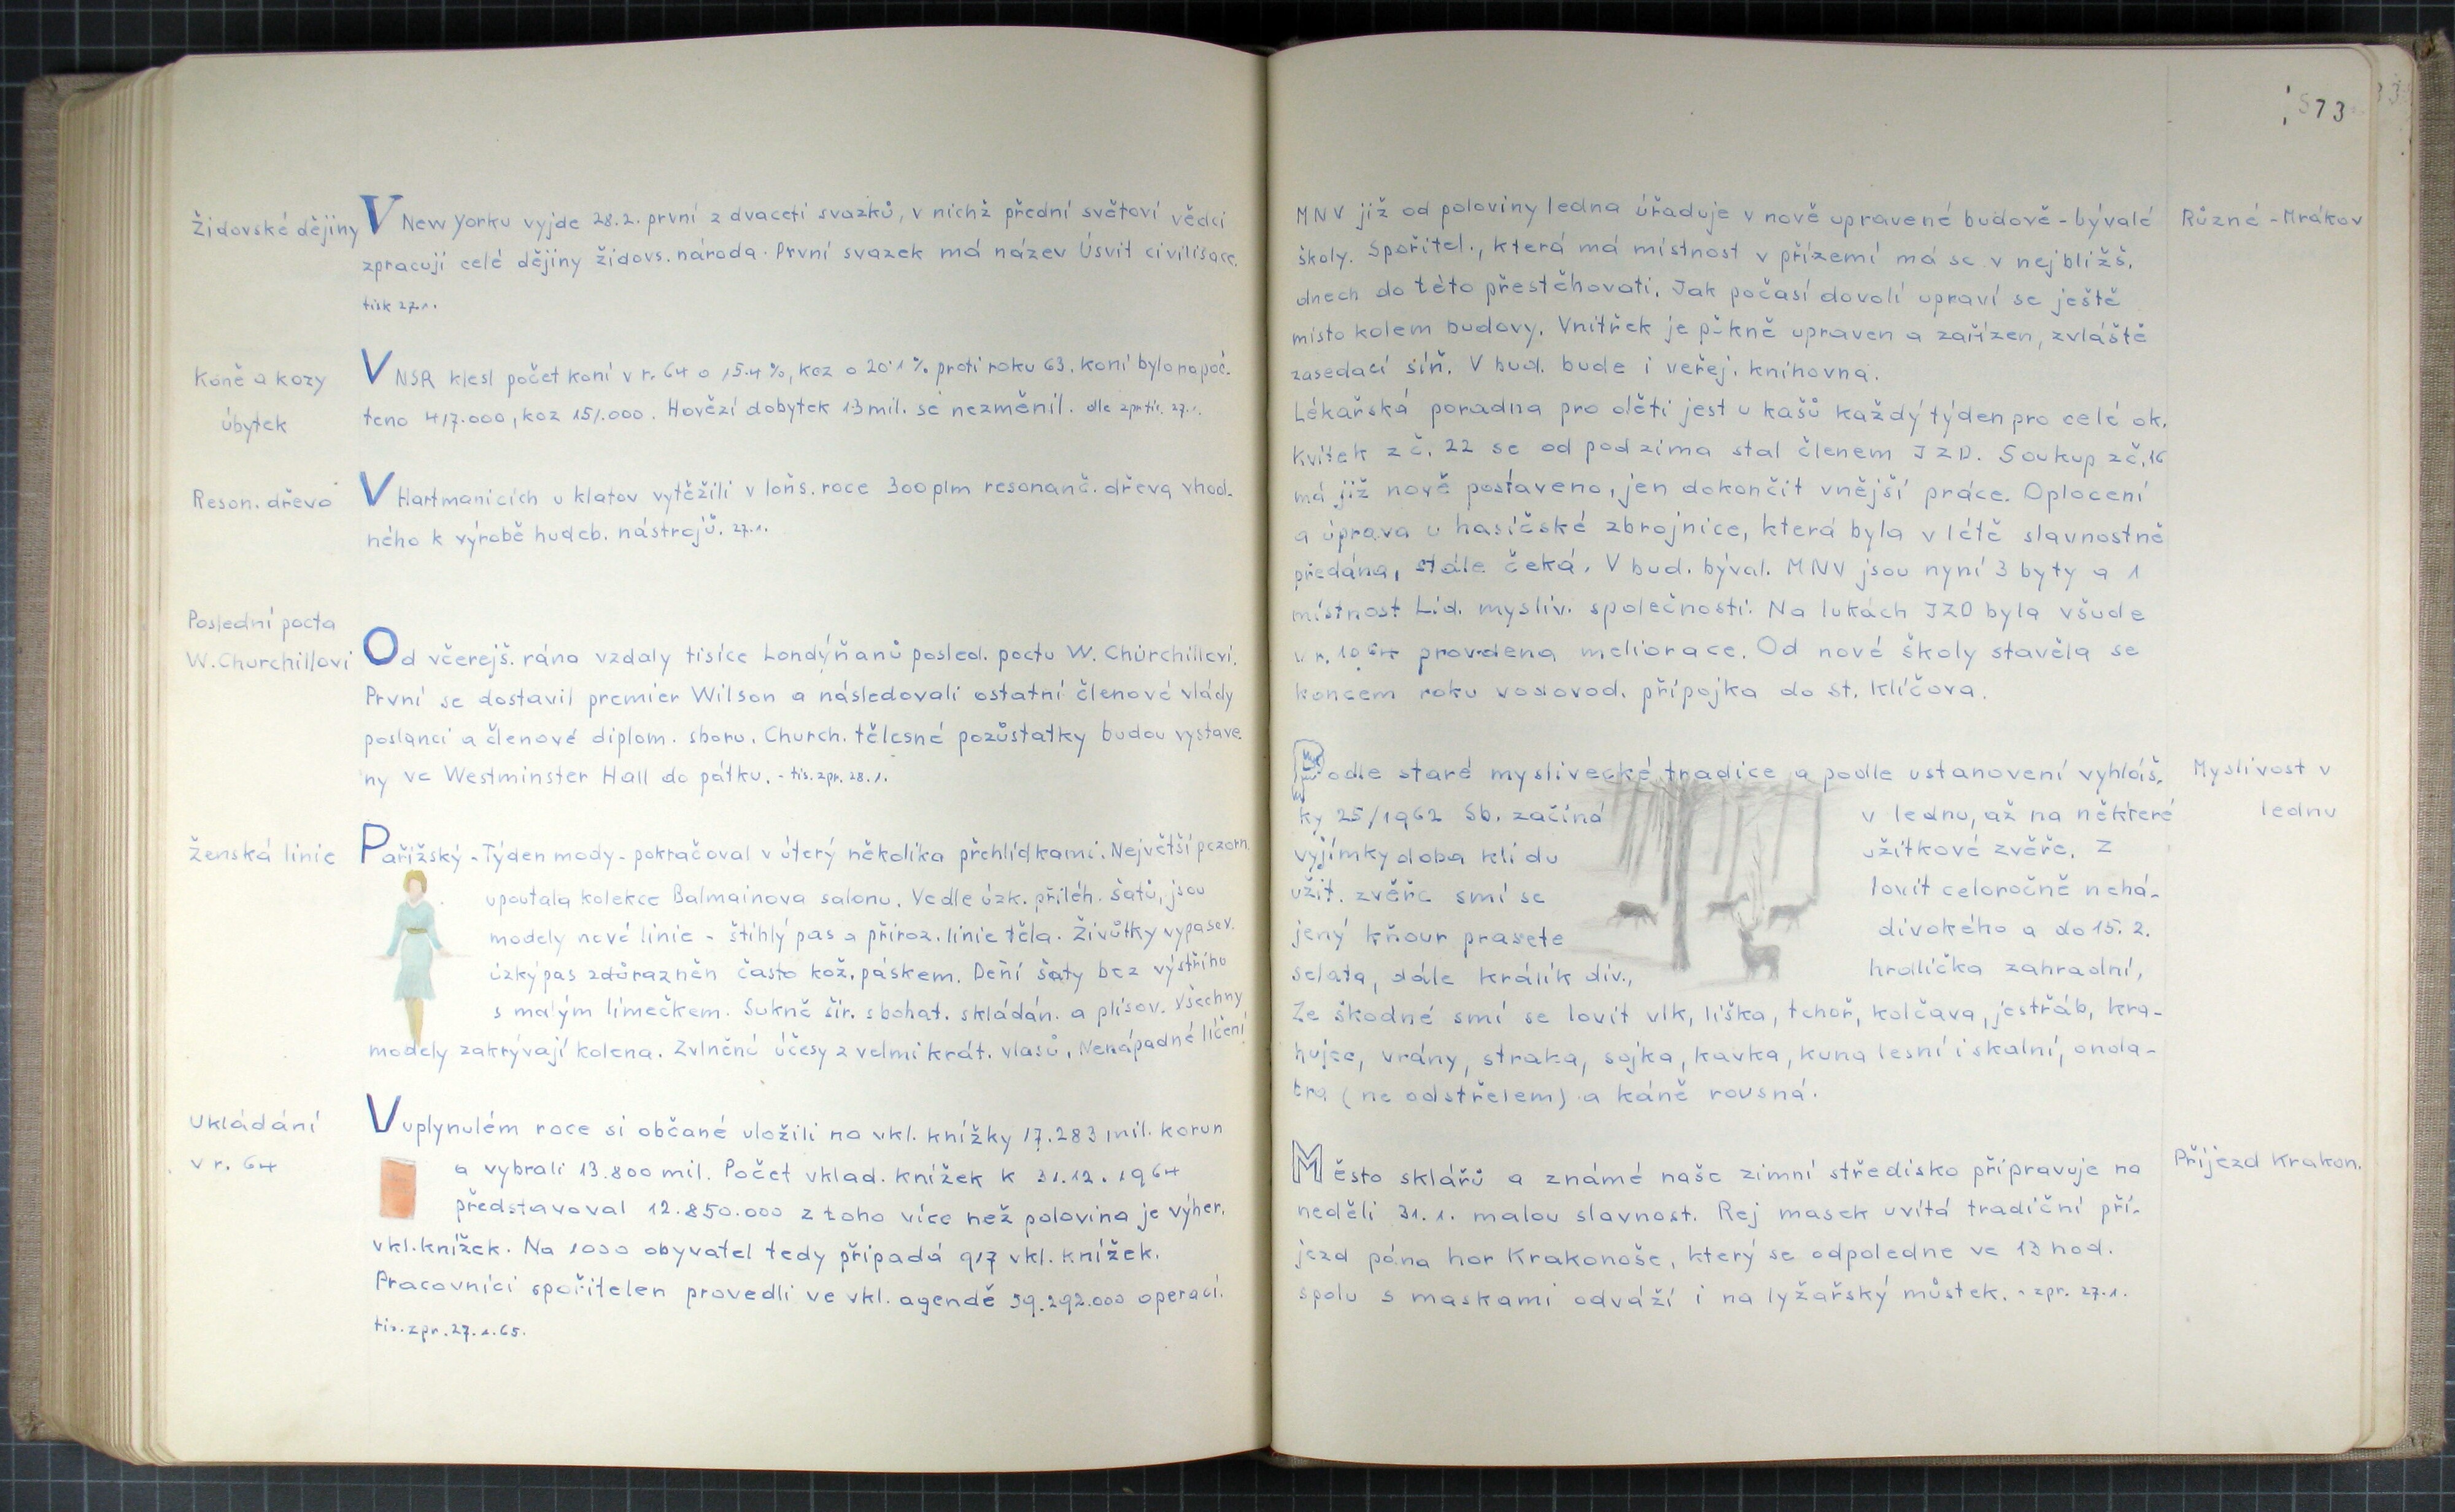 Židovské dějiny
V New Yorku vyjde 28.2. první z dvaceti svazků, v nichž přední světoví vědci
zpracují celé dějiny židovs. národa. První svazek má název Úsvit civilisace.
tisk 27.1.
Koně a kozy
úbytek
V NSR klesl počet koní v r. 64 o 15.4 %, koz o 20.1 % proti roku 63. Koní bylo napoč.
teno 417.000, koz 151.000. Hovězí dobytek 13 mil. se nezměnil. dle zpr. tis. 27.1.
Reson. dřevo
V Hartmanicích u Klatov vytěžili v loňs. roce 300 plm resonanč. dřeva vhod-
ného k výrobě hudeb. nástrojů. 27.1.
Poslední pocta
W. Churchillovi
Od včerejš. rána vzdaly tisíce Londýňanů posled. poctu W. Churchillovi.
První se dostavil premier Wilson a následovali ostatní členové vlády
poslanci a členové diplom. sboru. Church. tělesné pozůstatky budou vystave-
ny ve Westminster Hall do pátku. - tis. zpr. 28.1.
Ženská linie
Pařížský - Týden mody - pokračoval v úterý několika přehlídkami. Největší pozorn.
upoutala kolekce Balmainova salonu. Vedle úzk. příleh. šatů, jsou
modely nové linie - štíhlý pas a přiroz. linie těla. Živůtky vypasov.
úzký pas zdůrazněn často kož. páskem. Deňí šaty bez výstřihu
s malým límečkem. Sukně šir. s bohat. skládán. a plisov. Všechny
modely zakrývají kolena. Zvlněné účesy z velmi krát. vlasů. Nenápadné líčení
Ukládání
v r. 64
V uplynulém roce si občané uložili na vkl. knížky 17.283 mil. korun
a vybrali 13.800 mil. Počet vklad. knížek k 31.12.1964
představoval 12.850.000 z toho více než polovina je výher.
vkl. knížek. Na 1000 obyvatel tedy připadá 917 vkl. knížek.
Pracovníci spořitelen provedli ve vkl. agendě 59.292.000 operací.
tis. zpr. 27.1.65.
573
Různé - Mrákov
MNV již od poloviny ledna úřaduje v nově upravené budově - bývalé
školy. Spořitel., která má místnost v přízemí má se v nejbližš.
dnech do této přestěhovati. Jak počasí dovolí upraví se ještě
místo kolem budovy. Vnitřek je pěkně upraven a zařízen, zvláště
zasedací síň. V bud. bude i veřej. knihovna.
Lékařská poradna pro děti jest u Kašů každý týden pro celé ok.
Kvítek z č. 22 se od podzima stal členem JZD. Soukup z č. 16
má již nově postaveno, jen dokončit vnější práce. Oplocení
a úprava u hasičské zbrojnice, která byla v létě slavnostně
předána, stále čeká. V bud. býval. MNV jsou nyní 3 byty a 1
místnost Lid. mysliv. společnosti. Na lukách JZD byla všude
v r. provdena meliorace. Od nové školy stavěla se
koncem roku vodovod. přípojka do st. Klíčova.
Myslivost v
lednu
Podle staré myslivecké tradice a podle ustanovení vyhláš.
ky 25/1962 Sb. začíná v lednu, až na některé
vyjímky doba klidu užitkové zvěře. Z
užit. zvěře smí se lovit celoročně nehá-
jený kňour prasete divokého a do 15. 2.
selata, dále králík div., hrdlička zahradní,
Ze škodné smí se lovit vlk, liška, tchoř, kolčava, jestřáb, kra-
hujec, vrány, straka, sojka, kavka, kuna lesní i skalní, onda-
tra (ne odstřelem) a káně rousná.
Příjezd Krakon.
Město sklářů a známé naše zimní středisko připravuje na
neděli 31.1. malou slavnost. Rej masek uvítá tradiční pří-
jezd pána hor Krakonoše, který se odpoledne ve 13 hod.
spolu s maskami odváží i na lyžařský můstek. - zpr. 27.1.